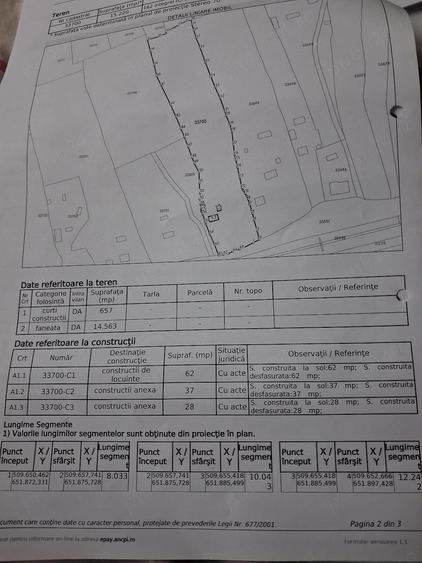 Teren
Nr cadastral Suprafața (mp)
33700 15.220
* Suprafața este determinată in planul de proiecție Stereo 70
DETALII LINIARE IMOBIL
33700
Date referitoare la teren
Nr Crt Categorie folosință Intra vilan Suprafața (mp) Tarla Parcelă Nr. topo Observații / Referințe
1 curti constructii DA 657 - - -
2 faneata DA 14.563 - - -
Date referitoare la construcții
Crt Număr Destinație construcție Supraf. (mp) Situație juridică Observații / Referințe
A1.1 33700-C1 constructii de locuinte 62 Cu acte S. construita la sol:62 mp; S. construita desfasurata:62 mp;
A1.2 33700-C2 constructii anexa 37 Cu acte S. construita la sol:37 mp; S. construita desfasurata:37 mp;
A1.3 33700-C3 constructii anexa 28 Cu acte S. construita la sol:28 mp; S. construita desfasurata:28 mp;
Lungime Segmente
1) Valorile lungimilor segmentelor sunt obținute din proiecție în plan.
Punct început X / Y Punct sfârșit X / Y Lungime segment
1 509.650,462 651.872,331 2 509.657,741 651.875,728 8.033
Punct început X / Y Punct sfârșit X / Y Lungime segment
2 509.657,741 651.875,728 3 509.655,418 651.885,499 10.043
Punct început X / Y Punct sfârșit X / Y Lungime segment
3 509.655,418 651.885,499 4 509.652,666 651.897,428 12.242
cument care conține date cu caracter personal, protejate de prevederile Legii Nr. 677/2001.
Pagina 2 din 3
pentru informare on-line la adresa epay.ancpi.ro
Formular versiunea 1.1